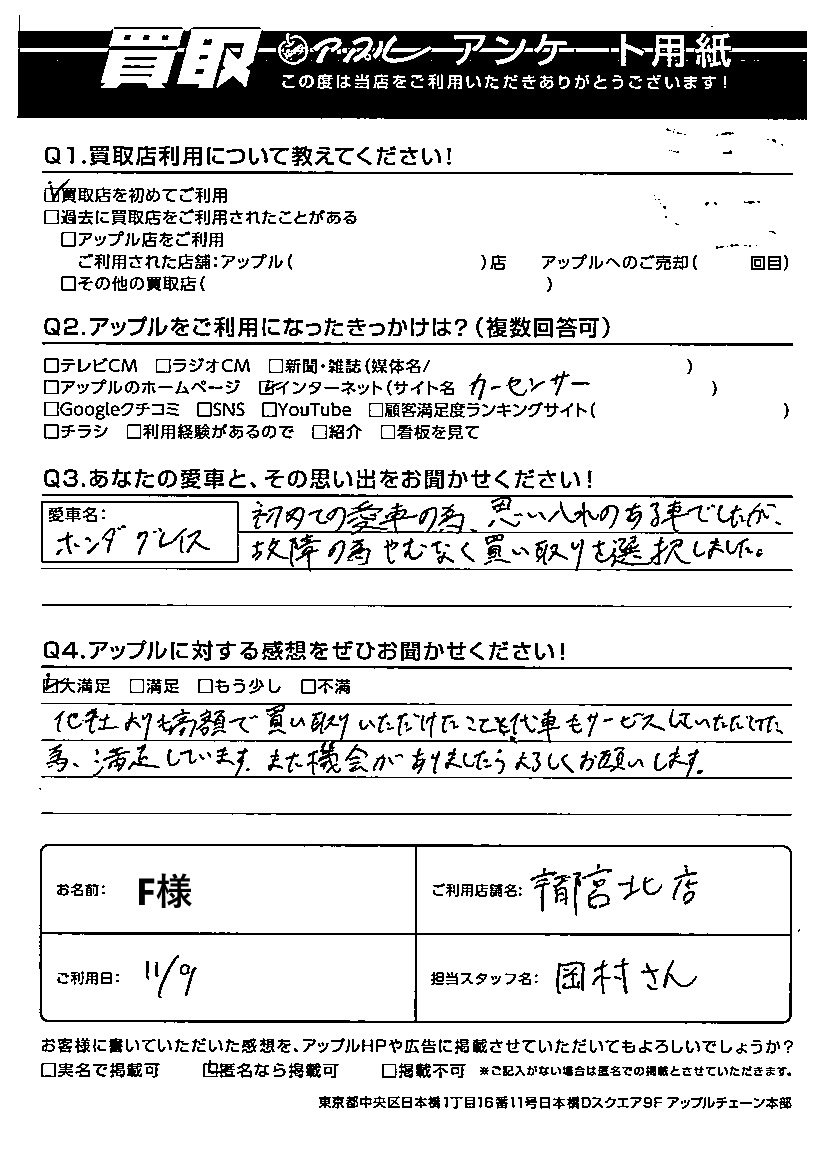 買取 アップル アンケート用紙
この度は当店をご利用いただきありがとうございます!
Q1.買取店利用について教えてください!
☑買取店を初めてご利用
□過去に買取店をご利用されたことがある
□アップル店をご利用
ご利用された店舗:アップル( )店 アップルへのご売却( 回目)
□その他の買取店( )
Q2.アップルをご利用になったきっかけは?(複数回答可)
□テレビCM □ラジオCM □新聞・雑誌(媒体名/ )
□アップルのホームページ ☑インターネット(サイト名 カーセンサー )
□Googleクチコミ □SNS □YouTube □顧客満足度ランキングサイト( )
□チラシ □利用経験があるので □紹介 □看板を見て
Q3.あなたの愛車と、その思い出をお聞かせください!
愛車名:
ホンダ グレイス
初めての愛車の為、思い入れのある車でしたが、
故障の為やむなく買い取りを選択しました。
Q4.アップルに対する感想をぜひお聞かせください!
☑大満足 □満足 □もう少し □不満
他社よりも高額で買い取りいただけたことと代車もサービスしていただけた
為、満足しています。また機会がありましたらよろしくお願いします。
お名前: F様
ご利用店舗名: 宇都宮北店
ご利用日: 11/9
担当スタッフ名: 岡村さん
お客様に書いていただいた感想を、アップルHPや広告に掲載させていただいてもよろしいでしょうか?
□実名で掲載可 ☑匿名なら掲載可 □掲載不可 ※ご記入がない場合は匿名での掲載とさせていただきます。
東京都中央区日本橋1丁目16番11号日本橋Dスクエア9F アップルチェーン本部